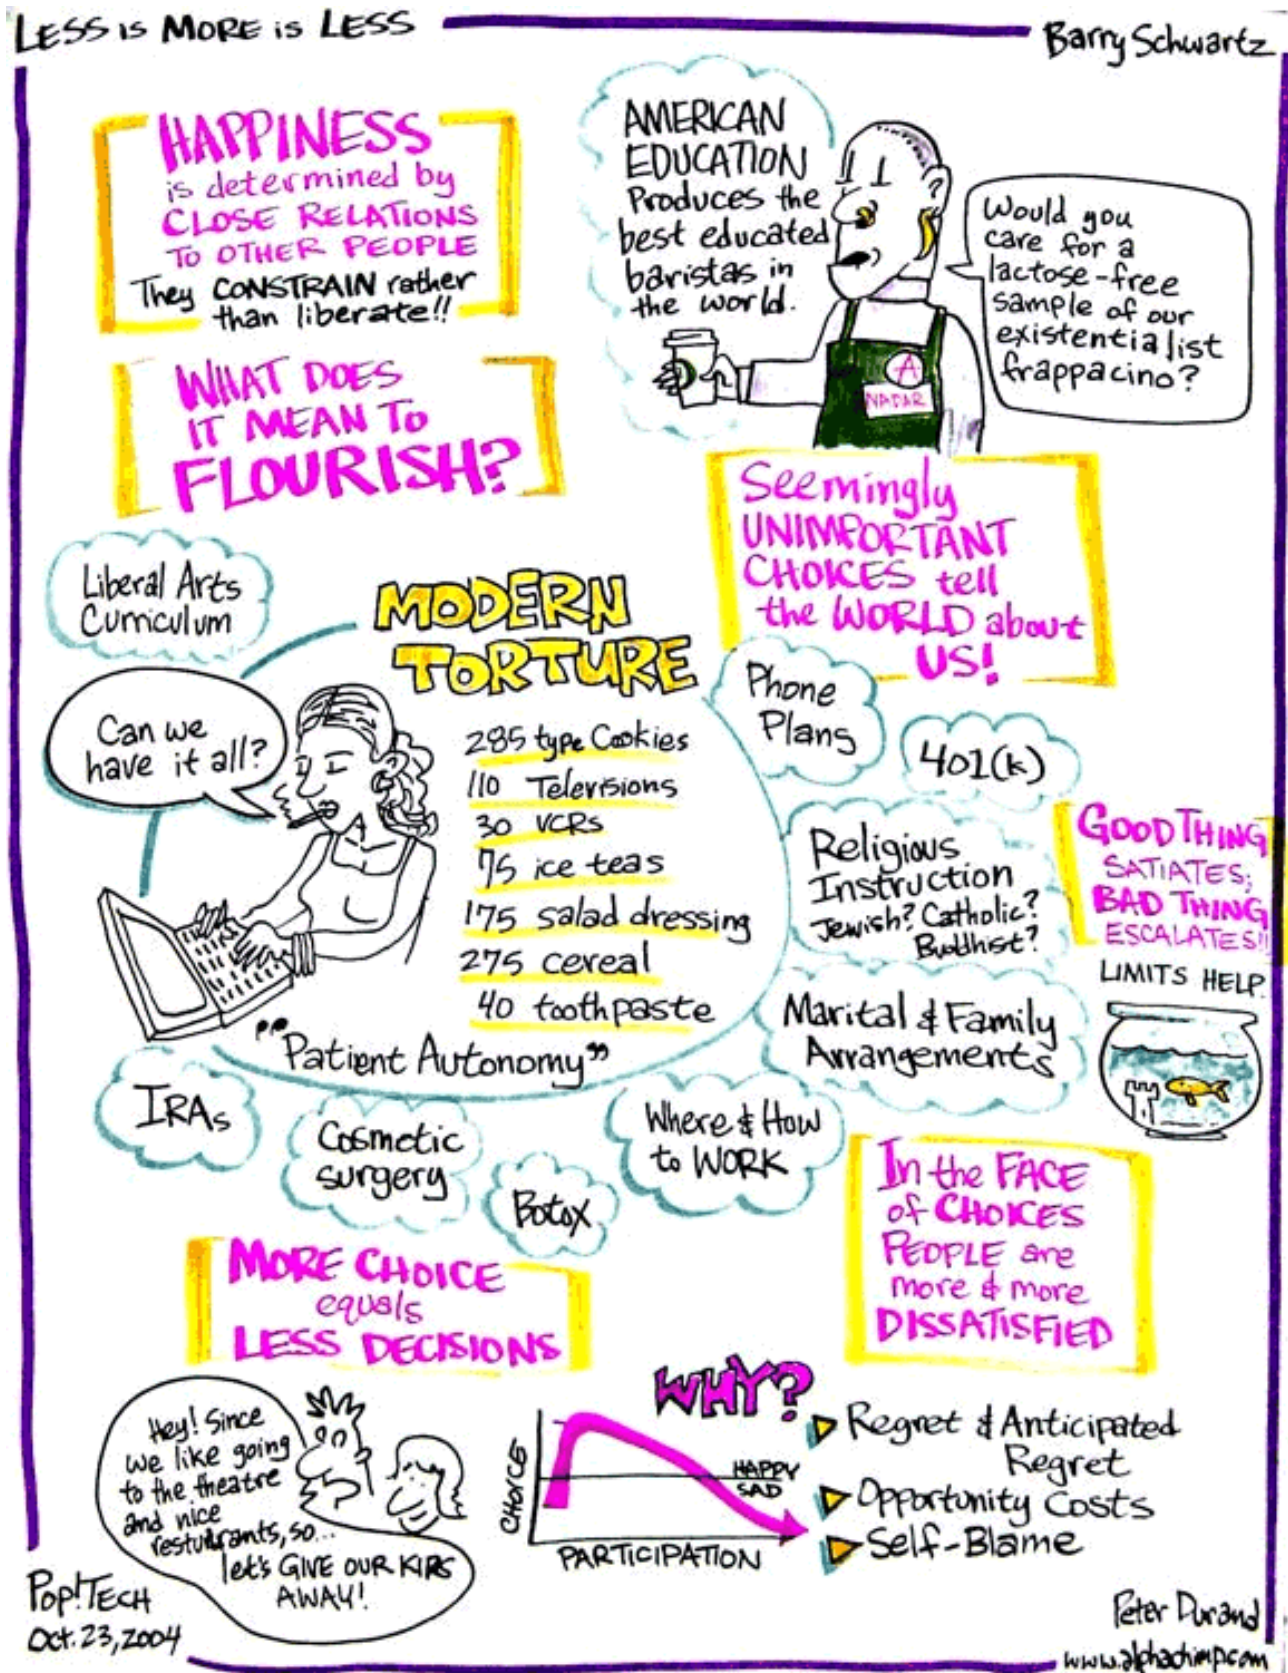 LESS is MORE is LESS
Barry Schwartz
HAPPINESS
is determined by
CLOSE RELATIONS
TO OTHER PEOPLE
They CONSTRAIN rather
than liberate!!
AMERICAN
EDUCATION
Produces the
best educated
baristas in
the world.
Would you
care for a
lactose-free
sample of our
existentialist
frappacino?
A
NADAR
WHAT DOES
IT MEAN TO
FLOURISH?
Seemingly
UNIMPORTANT
CHOICES tell
the WORLD about
US!
Liberal Arts
Curriculum
Can we
have it all?
MODERN
TORTURE
285 type Cookies
110 Televisions
30 VCRs
75 ice teas
175 salad dressing
275 cereal
40 toothpaste
"Patient Autonomy"
Phone
Plans
401(k)
Religious
Instruction
Jewish? Catholic?
Buddhist?
Marital & Family
Arrangements
GOOD THING
SATIATES;
BAD THING
ESCALATES!!
LIMITS HELP.
IRAs
Cosmetic
surgery
Botox
Where & How
to WORK
In the FACE
of CHOICES
PEOPLE are
more & more
DISSATISFIED
MORE CHOICE
equals
LESS DECISIONS
Hey! Since
we like going
to the theatre
and nice
resturants, so...
let's GIVE OUR KIDS
AWAY!
WHY?
CHOICE
HAPPY
SAD
PARTICIPATION
Regret & Anticipated
Regret
Opportunity Costs
Self-Blame
Pop!TECH
Oct. 23, 2004
Peter Durand
www.alphachimp.com